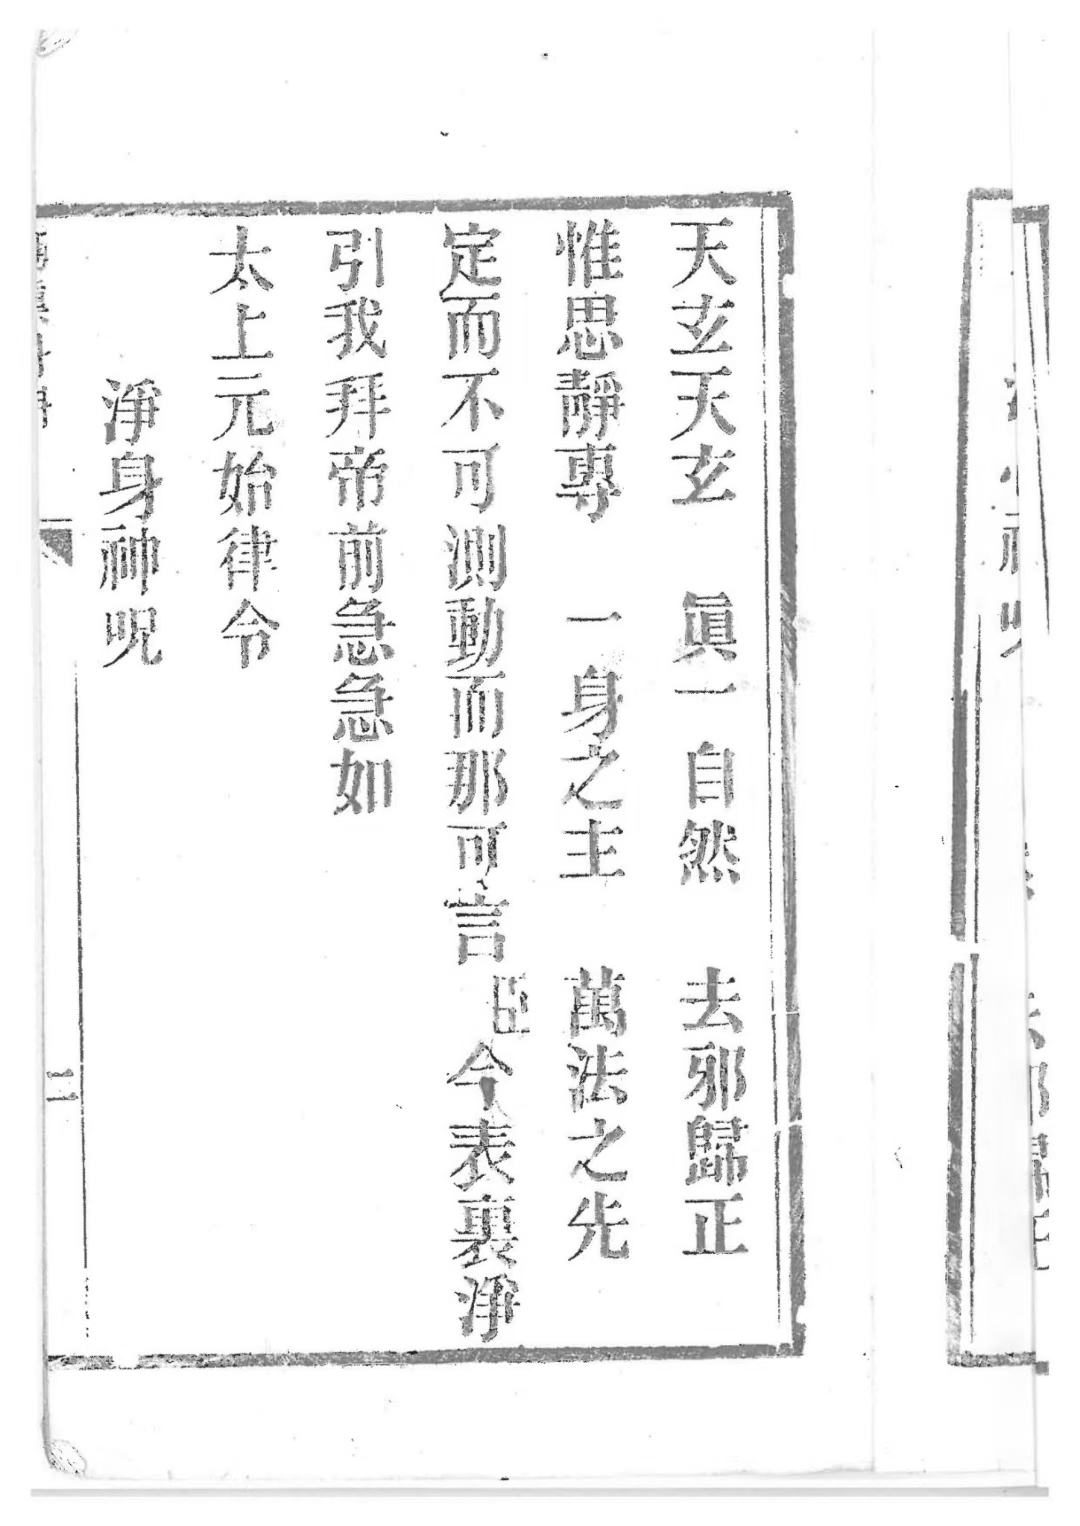 天玄天玄　眞一自然　去邪歸正
惟思靜專　一身之主　萬法之先
定而不可測動而那可言臣今表裏淨
引我拜帝前急急如
太上元始律令
淨身神呪
二